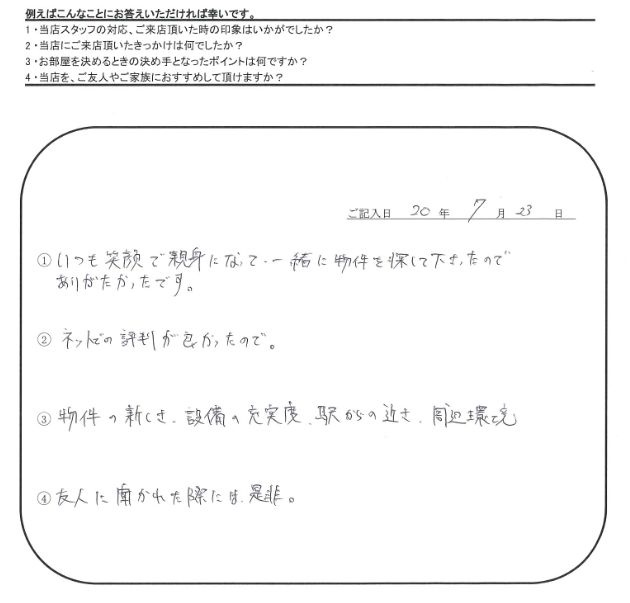 例えばこんなことにお答えいただければ幸いです。
1・当店スタッフの対応、ご来店頂いた時の印象はいかがでしたか？
2・当店にご来店頂いたきっかけは何でしたか？
3・お部屋を決めるときの決め手となったポイントは何ですか？
4・当店を、ご友人やご家族におすすめして頂けますか？
ご記入日 20 年 7 月 23 日
①いつも笑顔で親身になって、一緒に物件を探して下さったので
ありがたかったです。
② ネットでの評判が良かったので。
③ 物件の新しさ、設備の充実度、駅からの近さ、周辺環境
④ 友人に聞かれた際には、是非。